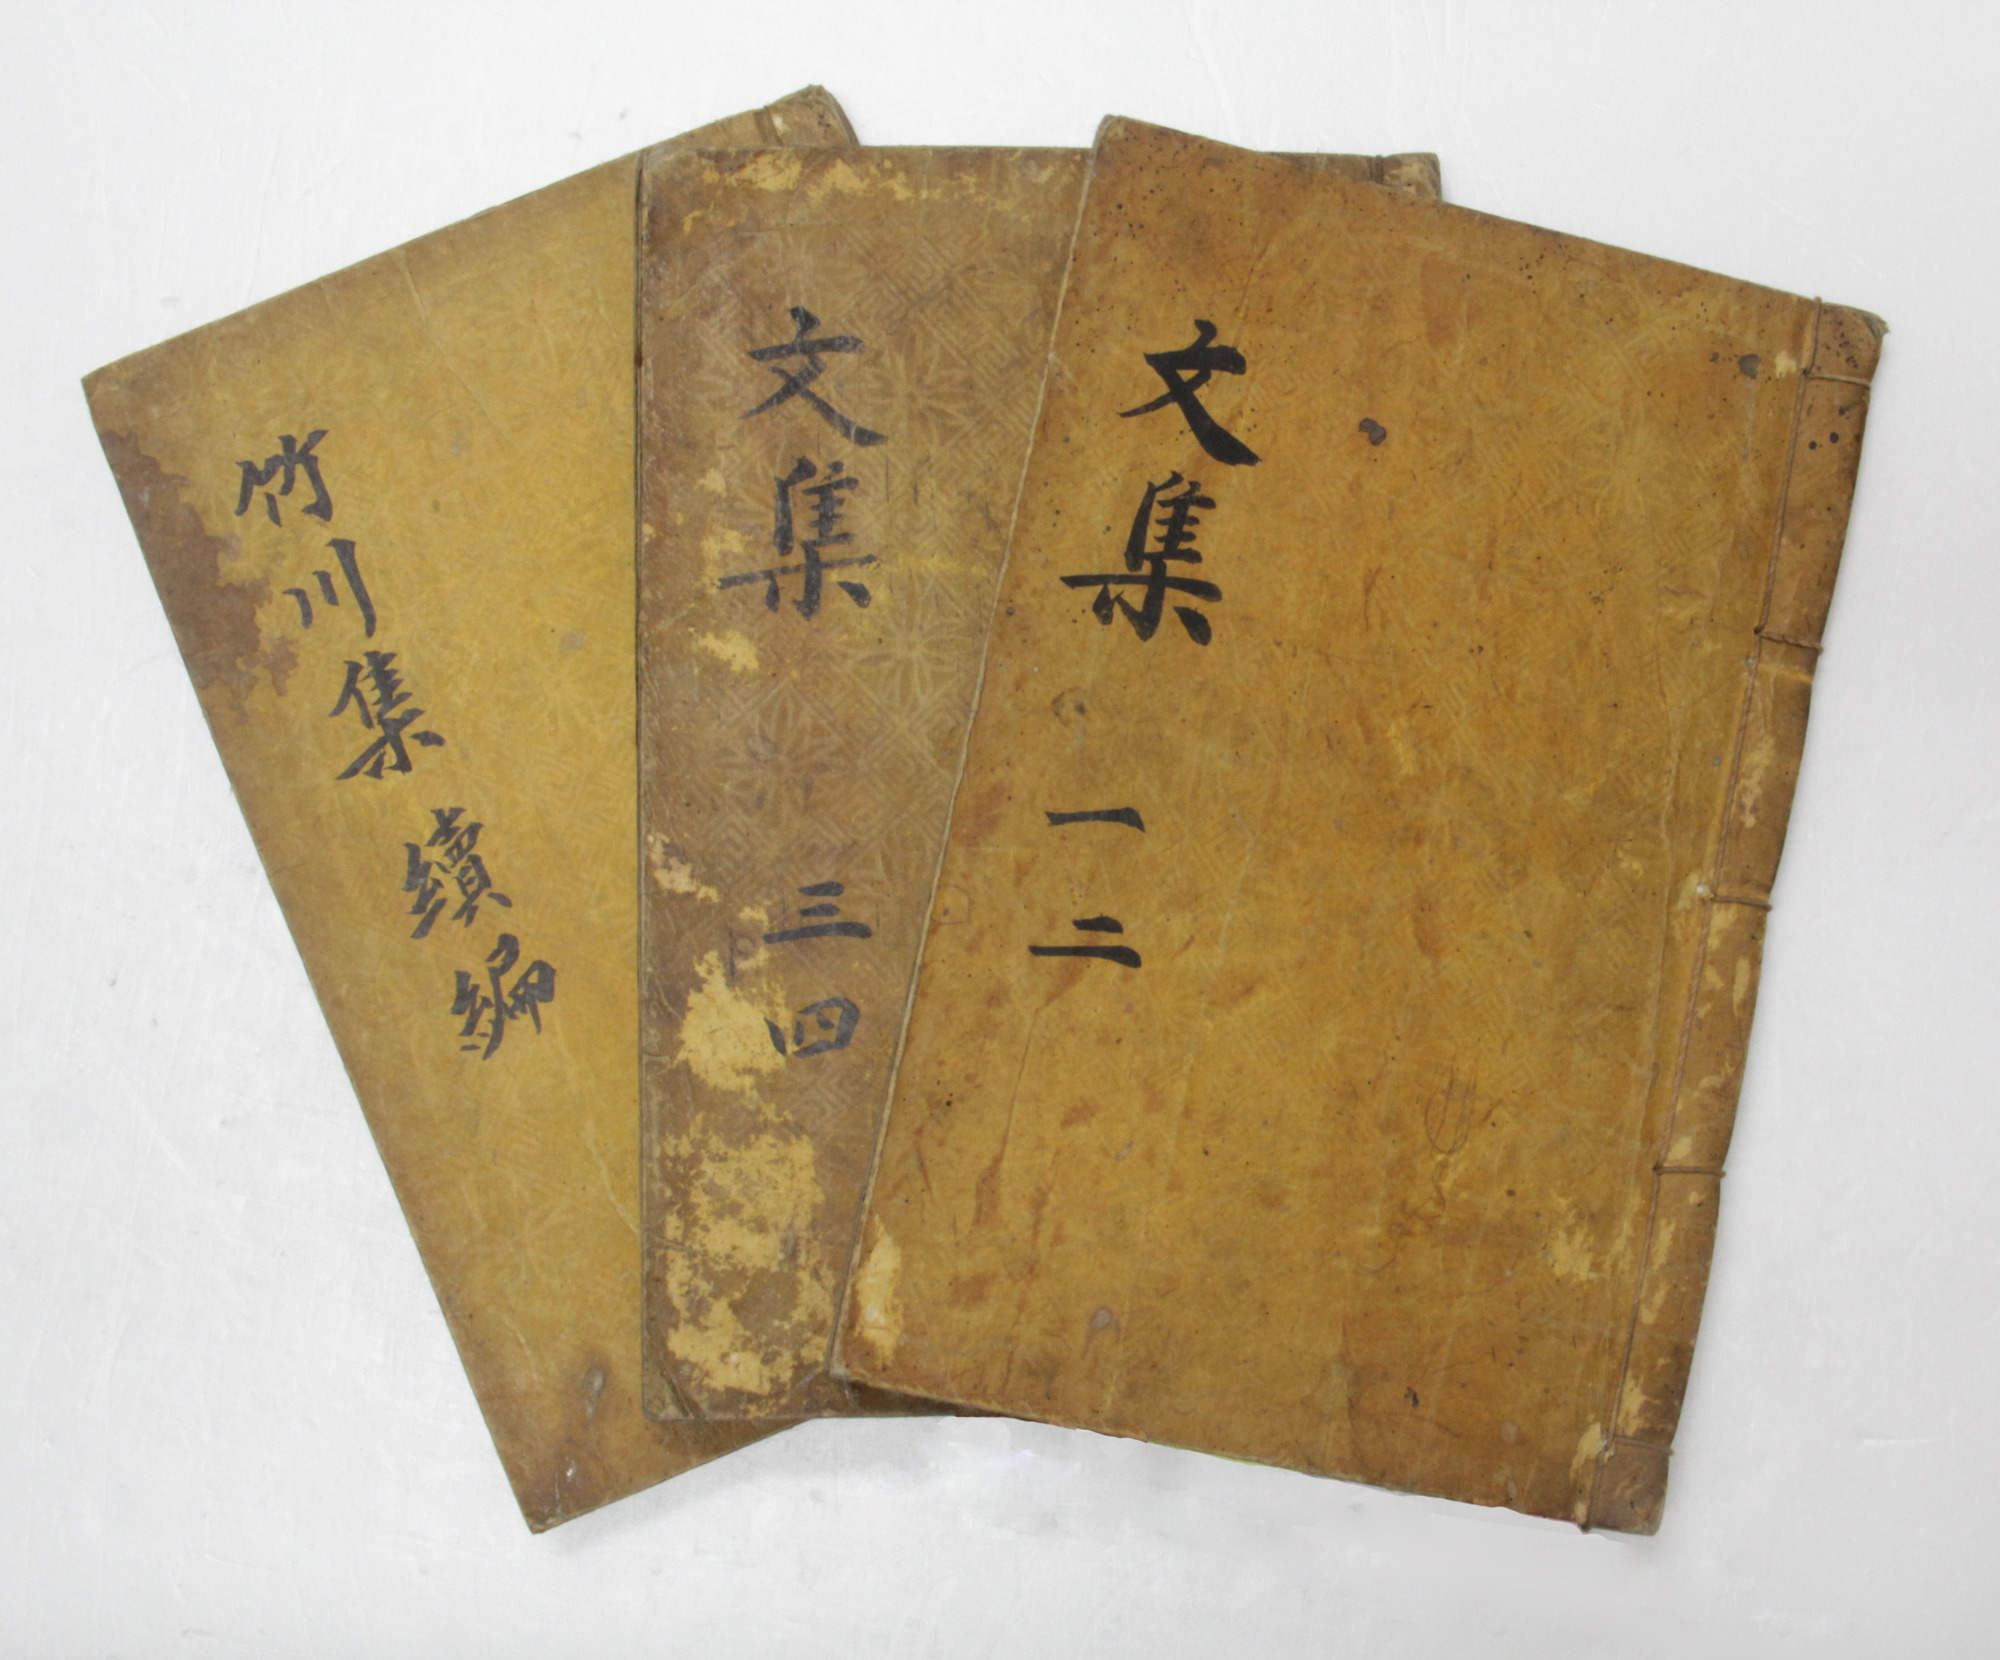 文集 一二
文集 三四
竹川集 續編